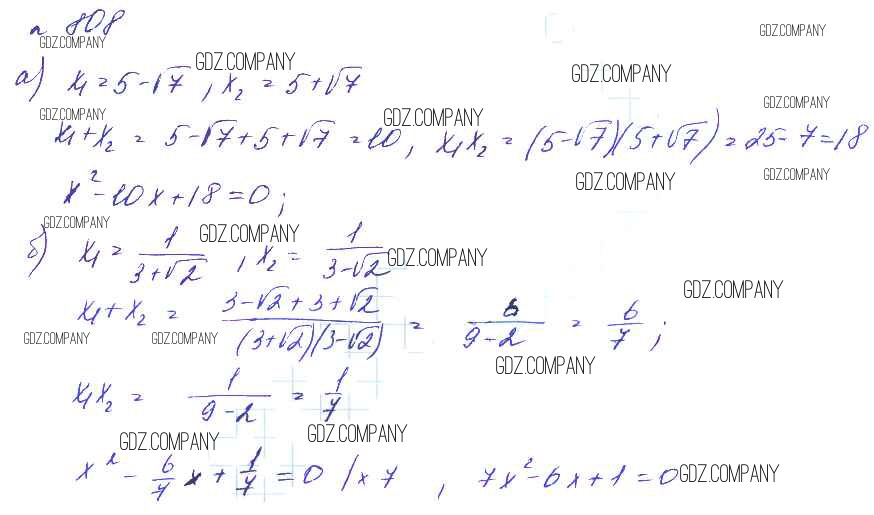 n 808
GDZ.COMPANY GDZ.COMPANY GDZ.COMPANY GDZ.COMPANY
а) x₁ = 5 - √7 , x₂ = 5 + √7
GDZ.COMPANY GDZ.COMPANY GDZ.COMPANY
x₁ + x₂ = 5 - √7 + 5 + √7 = 10 , x₁x₂ = (5 - √7)(5 + √7) = 25 - 7 = 18
GDZ.COMPANY GDZ.COMPANY
x² - 10x + 18 = 0 ;
GDZ.COMPANY GDZ.COMPANY GDZ.COMPANY
б) x₁ = 1/(3 + √2) , x₂ = 1/(3 - √2)
GDZ.COMPANY
x₁ + x₂ = (3 - √2 + 3 + √2)/((3 + √2)(3 - √2)) = 6/(9 - 2) = 6/7 ;
GDZ.COMPANY GDZ.COMPANY GDZ.COMPANY
x₁x₂ = 1/(9 - 2) = 1/7
GDZ.COMPANY GDZ.COMPANY
x² - 6/7 x + 1/7 = 0 / × 7 , 7x² - 6x + 1 = 0 GDZ.COMPANY